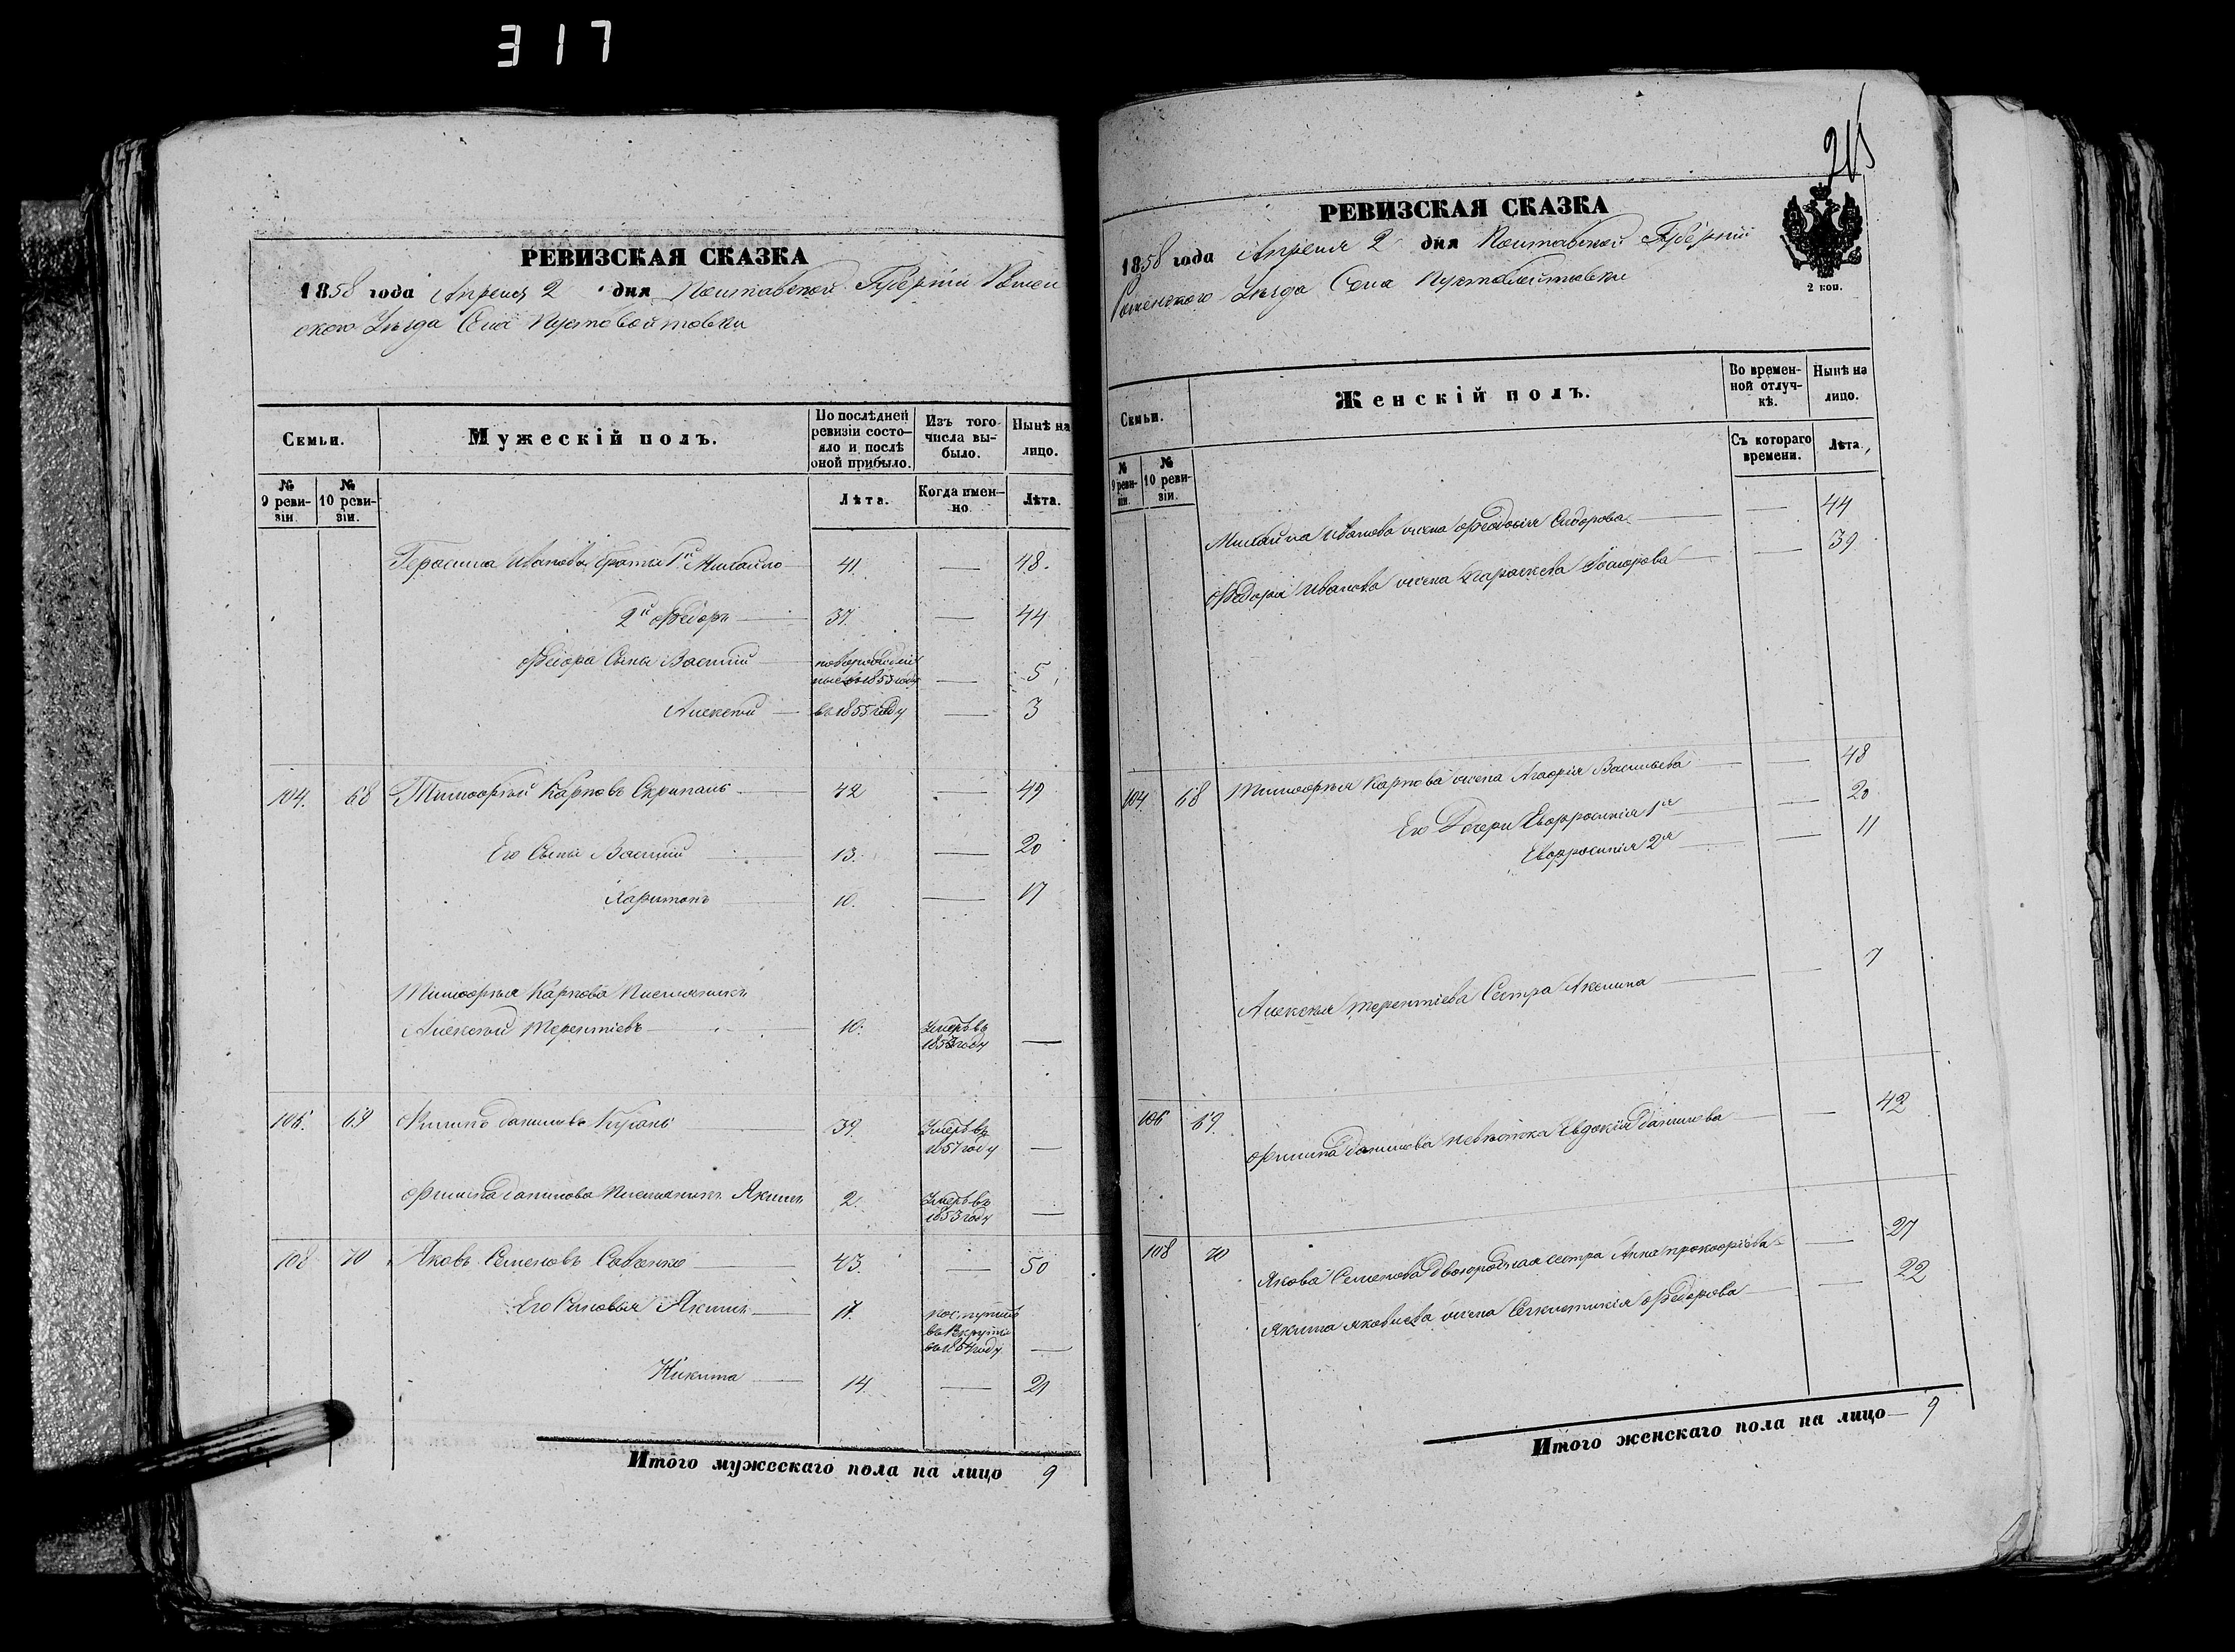 317
РЕВИЗСКАЯ СКАЗКА
1858 года Апреля 2 дня Полтавской Губерніи Ромен
ского Уезда Села Пустовойтовки
Семьи.
Мужескій полъ.
По послѣдней ревизіи состо-
яло и послѣ оной прибыло.
Изъ того числа вы-
было.
Нынѣ на лицо.
№ 9 реви-
зіи.
№ 10 реви-
зіи.
Лѣта.
Когда имен-
но
Лѣта.
Герасима Иванова братья 1й Михайло 41. — 48.
2й Федоръ 37. — 44
Федора Сыны Василий новорожден
ные въ 1853 году — 5
Алексей въ 1855 году — 3
104. 68 Тимофей Карповъ Скрипаль 42 — 49
Его Сыны Василий 13. — 20
Харитонъ 10. — 17
Тимофея Карпова Племянникъ
Алексей Терентіевъ 10. Умеръ въ
году —
106. 69 Филипъ Даниловъ 39. Умеръ въ
1857 году —
Филипа Данилова Племянникъ Якимъ 2. Умеръ въ
1853 году —
108 70 Яковъ Семеновъ Савченко 43. — 50
Его Сыновья Якимъ 17. поступилъ
въ Рекруты
въ 1854 году —
Никита 14 — 21
Итого мужескаго пола на лицо 9
215
РЕВИЗСКАЯ СКАЗКА
1858 года Апреля 2 дня Полтавской Губерніи
Роменского Уезда Села Пустовойтовки
2 коп.
Семьи.
Женскій полъ.
Во времен-
ной отлуч-
кѣ.
Нынѣ на лицо.
№ 9 реви-
зіи.
№ 10 реви-
зіи.
Съ котораго времени.
Лѣта.
Михайла Иванова жена Феодосія Сидорова — 44
Федора Иванова жена Параскева — 39
104. 68 Тимофея Карпова жена Агафія Васильева — 48
Его Дочери Евфросинія 1я — 20
Евфросинія 2я — 11
Алексея Терентіева Сестра Акилина — 7
106 69. Филипа Данилова невестка Евдокія Данилова — 42
108 70 Якова Семенова двоюродная сестра Анна Прокофіева — 27
Якима Яковлева жена Федорова — 22
Итого женскаго пола на лицо 9